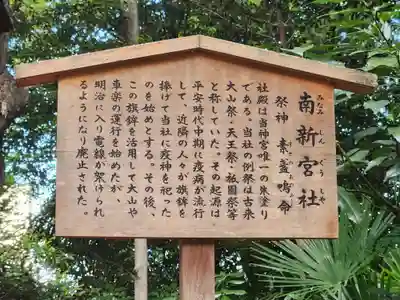 南新宮社
みなみしんぐうしゃ
祭神 素盞嗚命
社殿は当神宮唯一の朱塗り
である。当社の例祭は古来
大山祭・天王祭・祗園祭等
と称していた。その起源は
平安時代中期に疫病が流行
して、近隣の人々が旗鉾を
捧げて当社に疫神を祀った
のを始めとする。その後、
この旗鉾を活用して大山や
車楽の運行を始めたが、
明治に入り電線が架けられ
るようになり廃止された。